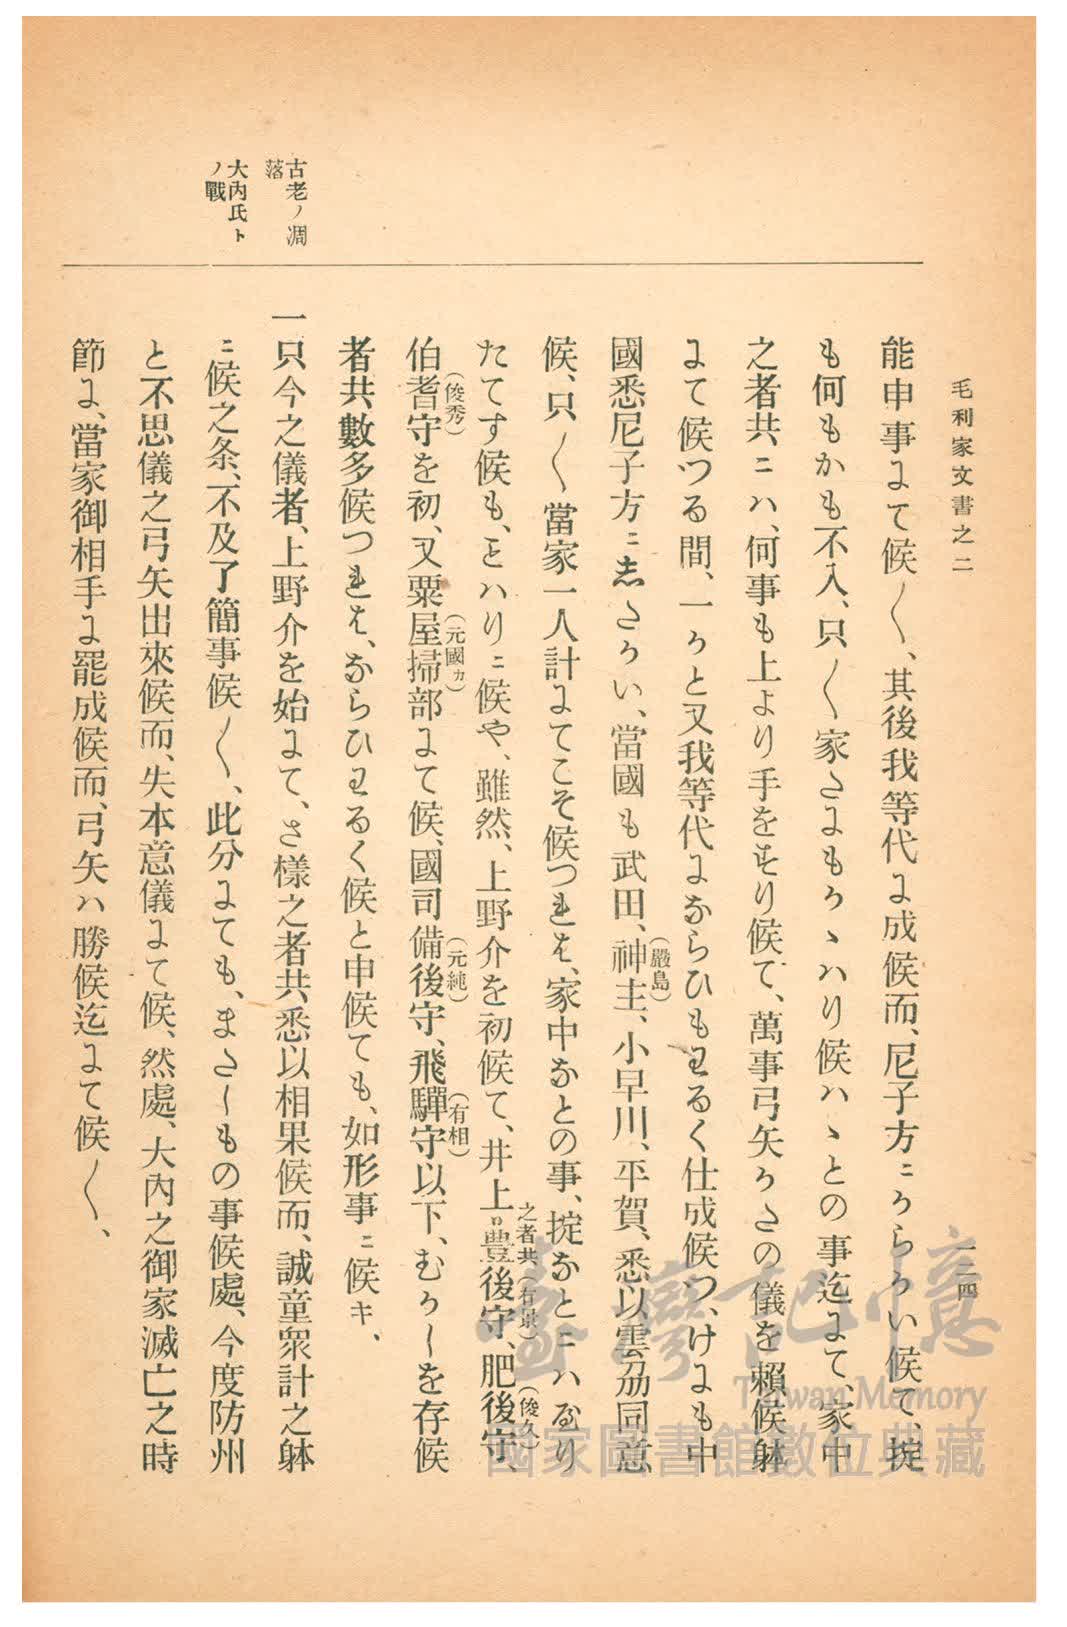 毛利家文書之二
一二四
能申事ニて候〱、其後我等代ニ成候而、尼子方ニからかい候て、掟
も何もかも不入、只〱家さまもかゝハり候ハゝとの事迄ニて、家中
之者共ニハ、何事も上より手をすり候て、萬事弓矢かさの儀を賴候躰
ニて候つる間、一かと又我等代ニならひもわるく仕成候つ、けニも中
國悉尼子方ニ志たかい、當國も武田、神主、小早川、平賀、悉以雲刕同意
(嚴島)
候、只〱當家一人計ニてこそ候つれは、家中なとの事、掟なとニハ及り
たてす候も、ことハりニ候や、雖然、上野介を初候て、井上豊後守、肥後守、
之者共、(有景)
(俊久)
伯耆守を初、又粟屋掃部ニて候、國司備後守、飛驒守以下、むかしを存候
(俊秀)
(元國カ)
(元純)
(有相)
者共數多候つれは、ならひわるく候と申候ても、如形事ニ候キ、
古老ノ凋落
一只今之儀者、上野介を始ニて、さ樣之者共、悉以相果候而、誠童衆計之躰
ニ候之条、不及了簡事候〱、此分ニても、またしもの事候處、今度防州
大內氏トノ戰
と不思儀之弓矢出來候而、失本意儀ニて候、然處、大內之御家滅亡之時
節ニ、當家御相手ニ罷成候而、弓矢ハ勝候迄ニて候〱、
臺灣記憶
Taiwan Memory
國家圖書館數位典藏